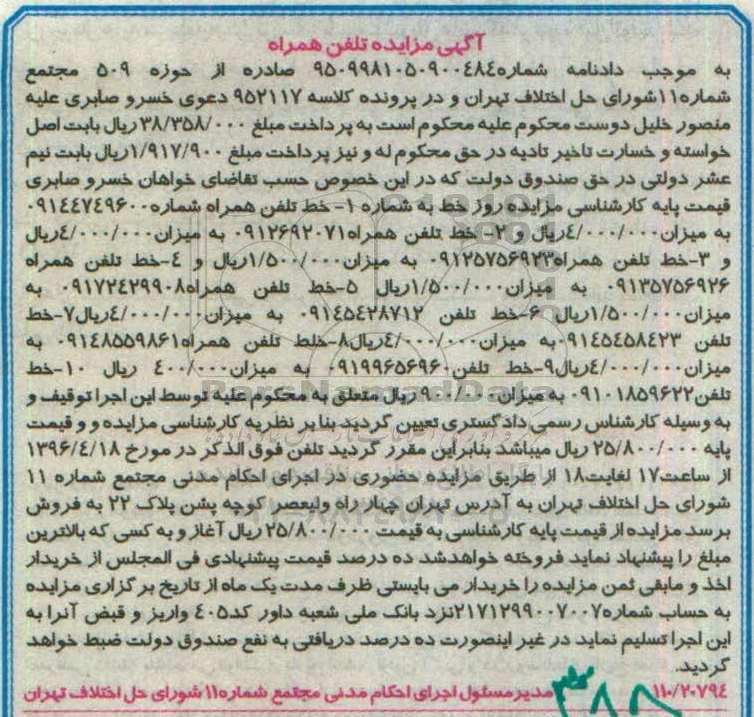 آگهی مزایده تلفن همراه
به موجب دادنامه شماره۹۵۰۹۹۸۱۰۵۰۹۰۰٤۸٤ صادره از حوزه ۵۰۹ مجتمع
شماره۱۱شورای حل اختلاف تهران و در پرونده کلاسه ۹۵۲۱۱۷ دعوی خسرو صابری علیه
منصور خلیل دوست محکوم علیه محکوم است به پرداخت مبلغ ۳۸/۳۵۸/۰۰۰ریال بابت اصل
خواسته و خسارت تاخیر تادیه در حق محکوم له و نیز پرداخت مبلغ ۱/۹۱۷/۹۰۰ریال بابت نیم
عشر دولتی در حق صندوق دولت که در این خصوص حسب تقاضای خواهان خسرو صابری
قیمت پایه کارشناسی مزایده روز خط به شماره ۱- خط تلفن همراه شماره۰۹۱٤٤۷٤۹٦۰۰
به میزان٤/۰۰۰/۰۰۰ریال و ۲- خط تلفن همراه۰۹۱۲٦۹۲۰۷۱ به میزان٤/۰۰۰/۰۰۰ریال
و ۳-خط تلفن همراه۰۹۱۲۵۷۵٦۹۲۳ به میزان۱/۵۰۰/۰۰۰ریال و ٤-خط تلفن همراه
۰۹۱۳۵۷۵٦۹۲٦ به میزان۱/۵۰۰/۰۰۰ریال ۵-خط تلفن همراه۰۹۱۷۲٤۲۹۹۰۸ به
میزان۱/۵۰۰/۰۰۰ریال ٦-خط تلفن ۰۹۱٤۵٤۲۸۷۱۲ به میزان٤/۰۰۰/۰۰۰ریال۷-خط
تلفن ۰۹۱٤۵٤۵۸٤۲۳به میزان٤/۰۰۰/۰۰۰ریال۸-خلط تلفن همراه۰۹۱٤۸۵۵۹۸٦۱ به
میزان٤/۰۰۰/۰۰۰ریال۹-خط تلفن۰۹۱۹۹٦۵٦۹٦۰ به میزان٤۰۰/۰۰۰ ریال ۱۰-خط
تلفن۰۹۱۰۱۸۵۹٦۲۲ به میزان۹۰۰/۰۰۰ریال متعلق به محکوم علیه توسط این اجرا توقیف و
به وسیله کارشناس رسمی دادگستری تعیین گردید بنابر نظریه کارشناسی مزایده و و قیمت
پایه ۲۵/۸۰۰/۰۰۰ ریال میباشد بنابراین مقرر گردید تلفن فوق الذکر در مورخ ۱۳۹٦/٤/۱۸
از ساعت۱۷ لغایت۱۸ از طریق مزایده حضوری در اجرای احکام مدنی مجتمع شماره ۱۱
شورای حل اختلاف تهران به آدرس تهران چهار راه ولیعصر کوچه پشن پلاک ۲۲ به فروش
برسد مزایده از قیمت پایه کارشناسی به قیمت ۲۵/۸۰۰/۰۰۰ ریال آغاز و به کسی که بالاترین
مبلغ را پیشنهاد نماید فروخته خواهدشد ده درصد قیمت پیشنهادی فی المجلس از خریدار
اخذ و مابقی ثمن مزایده را خریدار می بایستی ظرف مدت یک ماه از تاریخ برگزاری مزایده
به حساب شماره۲۱۷۱۲۹۹۰۰۷۰۰۷نزد بانک ملی شعبه داور کد٤۰۵ واریز و قبض آنرا به
این اجرا تسلیم نماید در غیر اینصورت ده درصد دریافتی به نفع صندوق دولت ضبط خواهد
گردید.
۱۱۰/۲۰۷۹٤ مدیر مسئول اجرای احکام مدنی مجتمع شماره۱۱ شورای حل اختلاف تهران
ParsNamadData